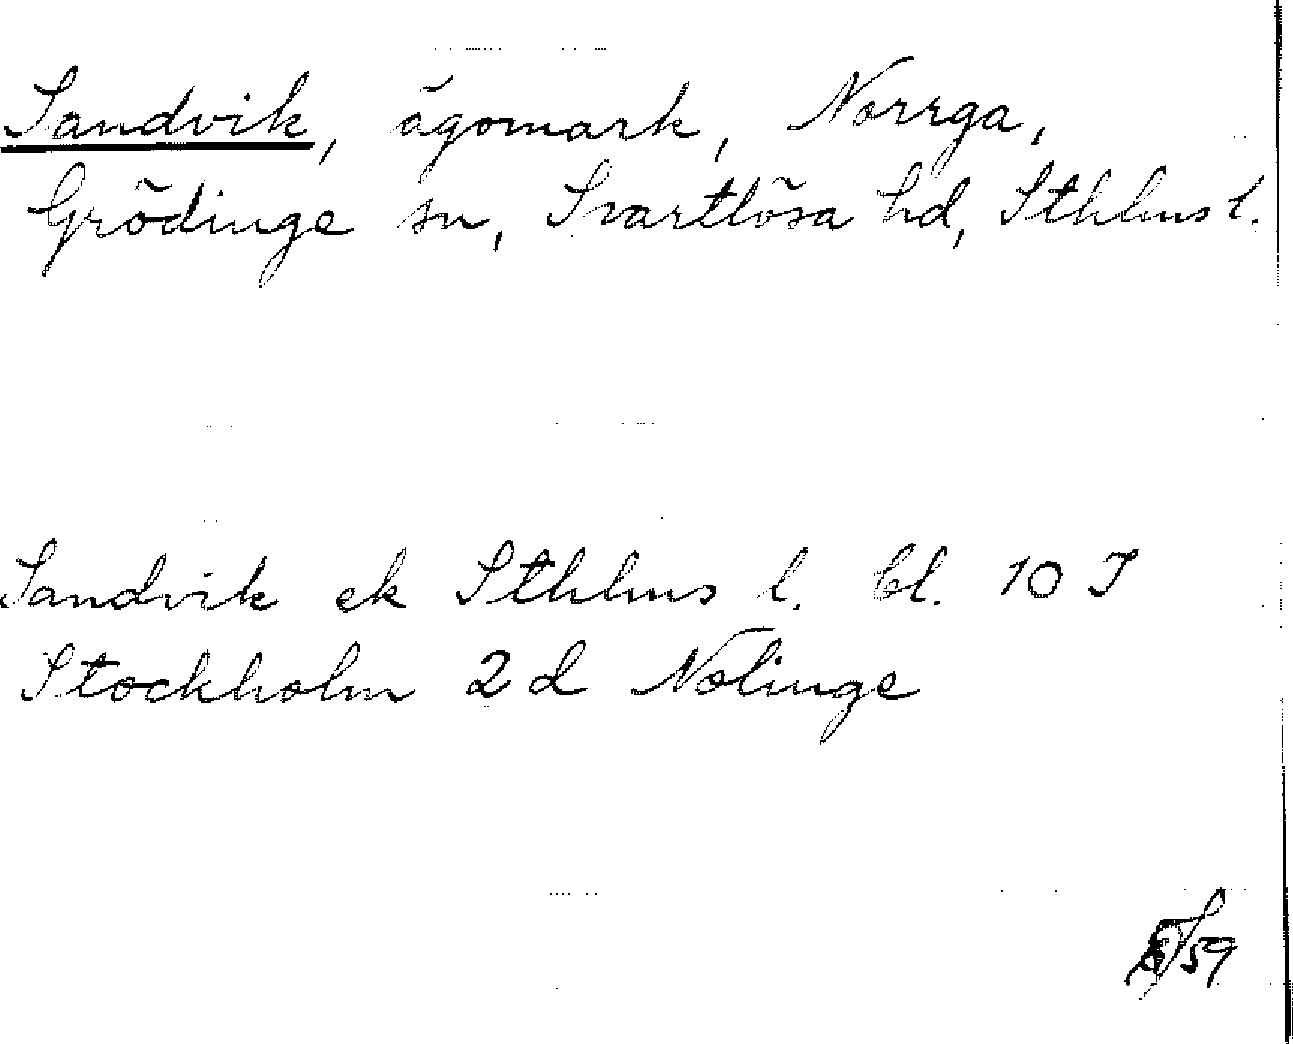 Sandvik, ägomark, Norrga,
Grödinge sn, Svartlösa hd, Sthlms l.
Sandvik ek Sthlms l. bl. 10 I
Stockholm 2 d Nolinge
/59